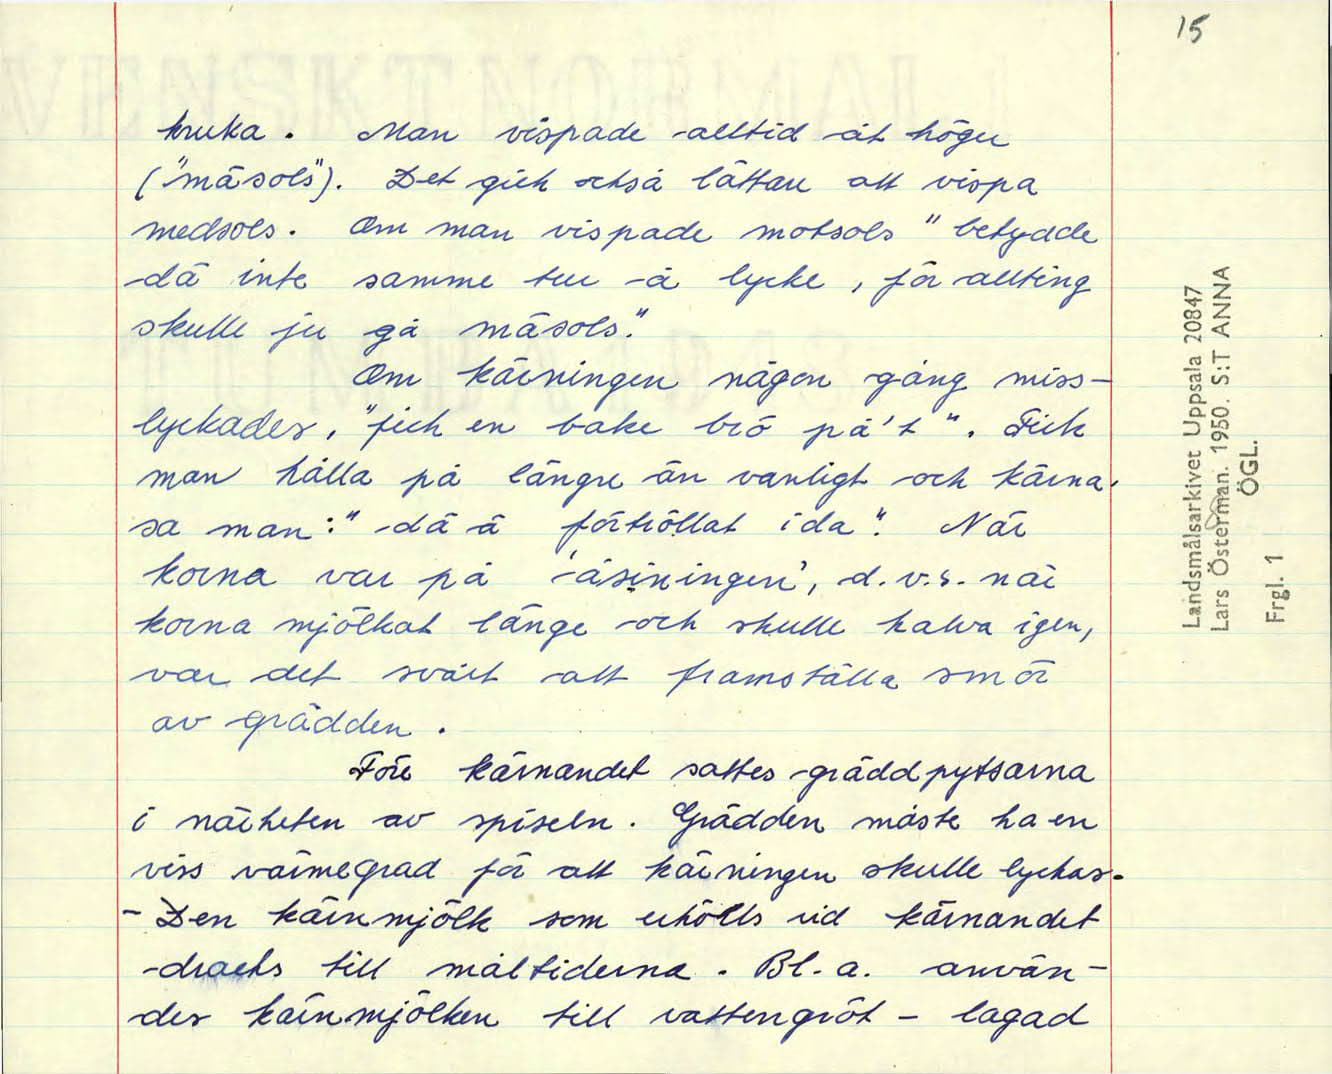 15
kruka. Man vispade alltid åt höger
("mäsols"). Det gick också lättare att vispa
medsols. Om man vispade motsols "betydde
dä inte samme tur å lycke, för allting
skulle ju gå mäsols."
Om kärningen någon gång miss-
lyckades, "fick en bake brö på't". Fick
man hålla på längre än vanligt och kärna,
sa man: "dä ä förtröllat ida". När
korna var på 'åsiningen', d.v.s. när
korna mjölkat länge och skulle kalva igen,
var det svårt att framställa smör
av grädden.
Före kärnandet sattes gräddpyttsarna
i närheten av spiseln. Grädden måste ha en
viss värmegrad för att kärningen skulle lyckas.
- Den kärnmjölk som erhölls vid kärnandet
dracks till måltiderna. Bl.a. använ-
des kärnmjölken till vattengröt - lagad
Landsmålsarkivet Uppsala 20847
Lars Österman. 1950. S:T ANNA
ÖGL.
Frgl. 1
SVENSKT NORMAL 1
TUMBA